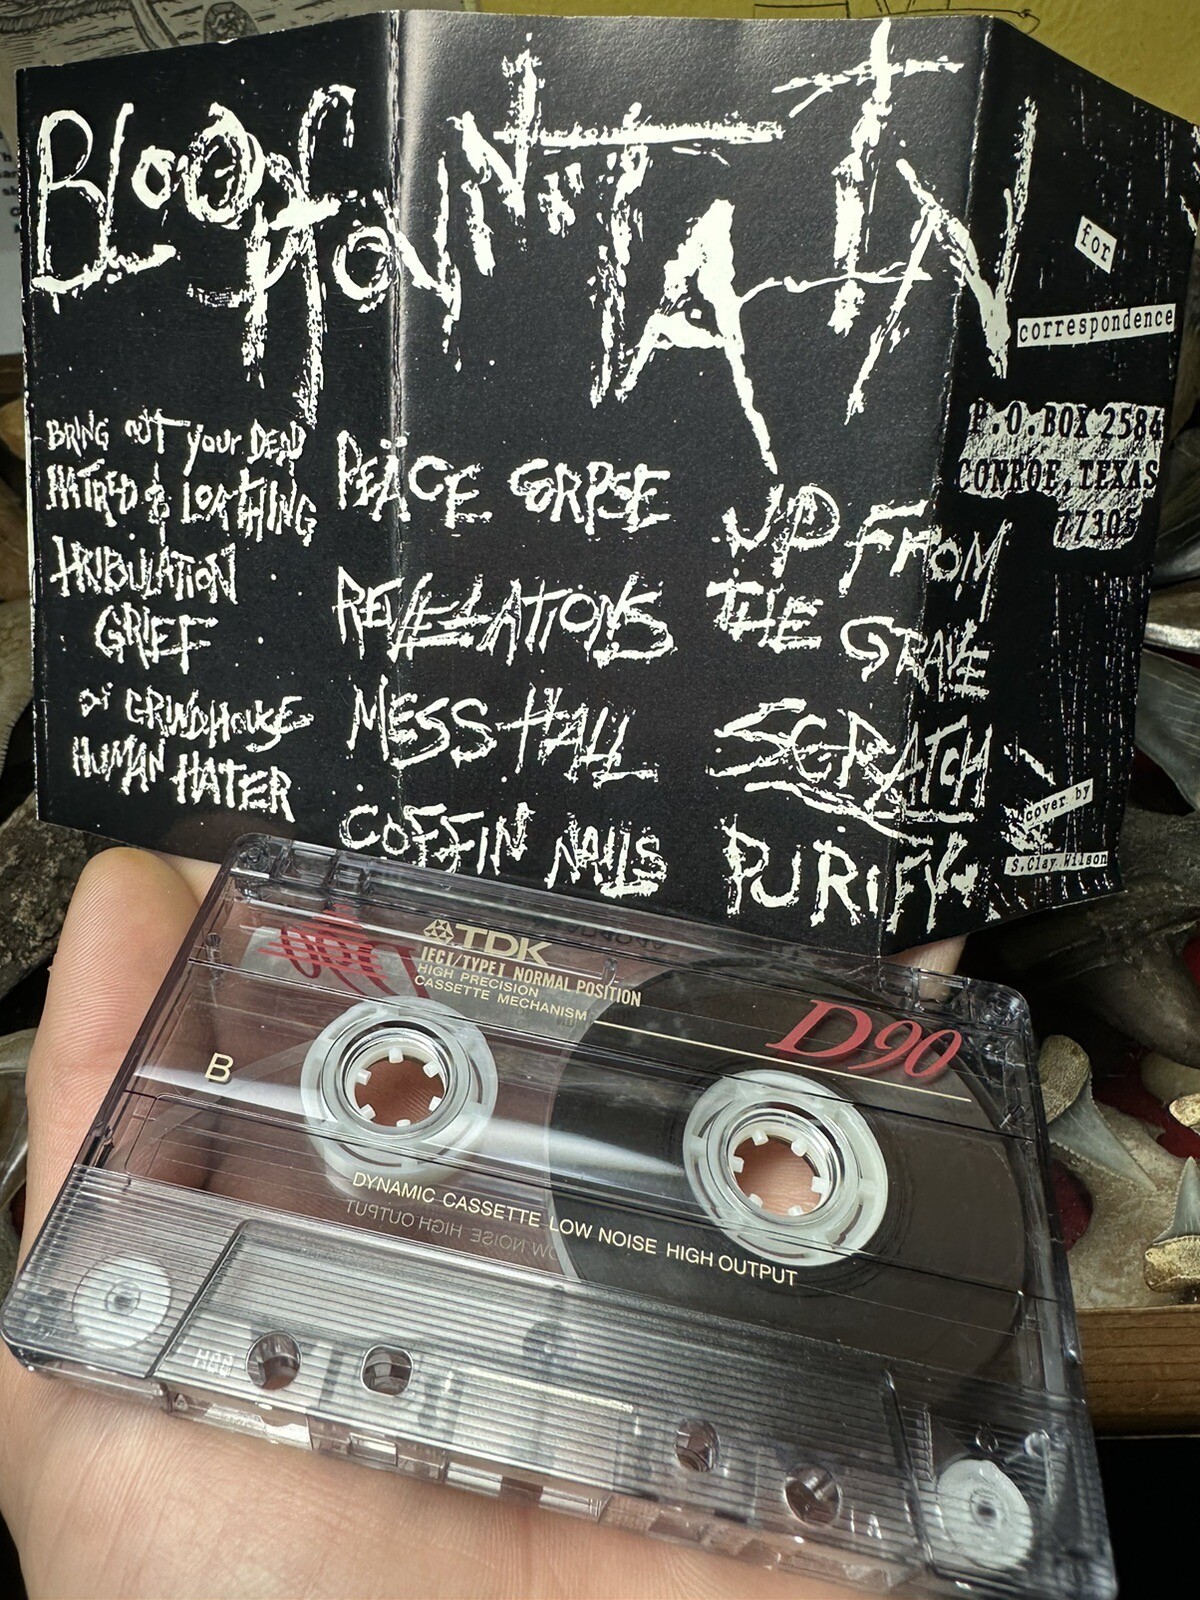 BLOOD MOUNTAIN
BRING OUT YOUR DEAD
HATRED & LOATHING
TRIBULATION
GRIEF
GRINDHOUSE
HUMAN HATER
PEACE CORPSE
REVELATIONS
MESS HALL
COFFIN NAILS
UP FROM
THE GRAVE
SCRATCH
PURIFY
for
correspondence
P.O.BOX 2584
CONROE, TEXAS
77305
cover by
S.Clay Wilson
TDK
IECI/TYPEI NORMAL POSITION
HIGH PRECISION
CASSETTE MECHANISM
D90
B
DYNAMIC CASSETTE LOW NOISE HIGH OUTPUT